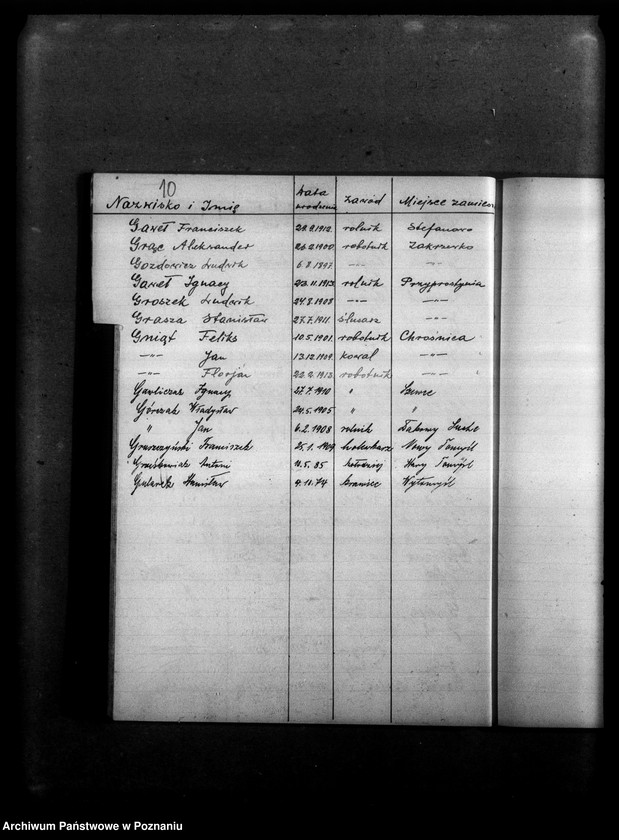 10
Nazwisko i Imię Data urodzenia Zawód Miejsce zamieszk
Gaweł Franciszek 29.9.1912. rolnik Stefanowo
Grąc Aleksander 26.2.1900. robotnik Zakrzewko
Gozdowicz Ludwik 6.8.1897. —"— —"—
Gaweł Ignacy 23.11.1913. rolnik Przyprostynia
Groszek Ludwik 24.8.1908 —"— —"—
Grasza Stanisław 27.7.1911. ślusarz —"—
Gniąt Feliks 10.5.1901. robotnik Chrośnica
—"— Jan 13.12.1909. kowal —"—
—"— Florjan 22.2.1913. robotnik —"—
Gawliczak Ignacy 27.7.1910 "
Górczak Władysław 24.5.1905 " "
" Jan 6.2.1908 rolnik
Gruszczyński Franciszek 25.1.1909 Nowy Tomyśl
Antoni 11.5.85 Nowy Tomyśl
Stanisław 9.11.74 krawiec Wytomyśl
Archiwum Państwowe w Poznaniu